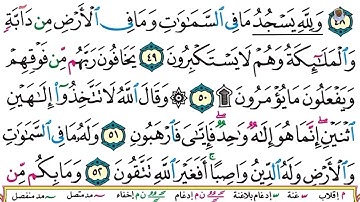 ٤٨ وَلِلَّهِ يَسْجُدُ مَا فِي السَّمَٰوَٰتِ وَمَا فِي الْأَرْضِ مِن دَآبَّةٍ
وَالْمَلَٰٓئِكَةُ وَهُمْ لَا يَسْتَكْبِرُونَ ٤٩ يَخَافُونَ رَبَّهُم مِّن فَوْقِهِمْ
وَيَفْعَلُونَ مَا يُؤْمَرُونَ ۩ ٥٠ ۞ وَقَالَ اللَّهُ لَا تَتَّخِذُوٓا إِلَٰهَيْنِ
اثْنَيْنِ ۖ إِنَّمَا هُوَ إِلَٰهٌ وَٰحِدٌ ۖ فَإِيَّٰيَ فَارْهَبُونِ ٥١ وَلَهُ مَا فِي السَّمَٰوَٰتِ
وَالْأَرْضِ وَلَهُ الدِّينُ وَاصِبًا ۚ أَفَغَيْرَ اللَّهِ تَتَّقُونَ ٥٢ وَمَا بِكُم مِّن
م إقلاب غنة إدغام بلاغنة م ن و ر ن إدغام م ن و ر ن إخفاء مد متصل مد منفصل